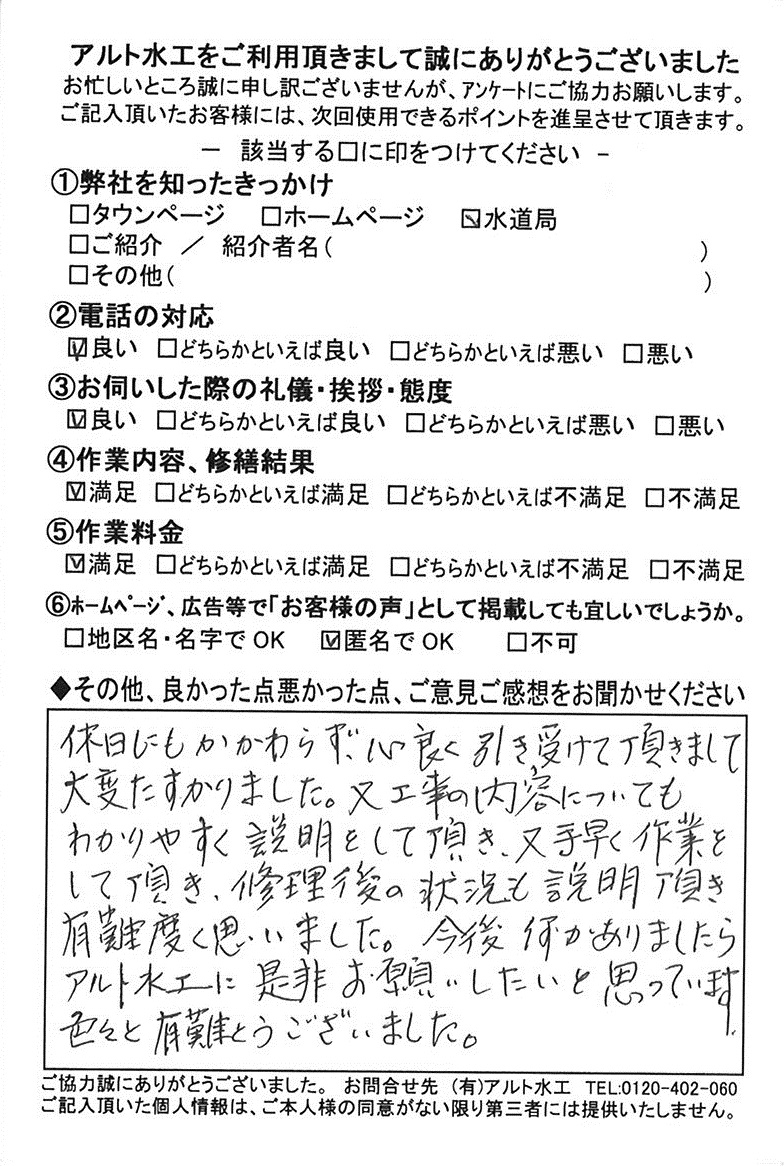 アルト水工をご利用頂きまして誠にありがとうございました
お忙しいところ誠に申し訳ございませんが、アンケートにご協力お願いします。
ご記入頂いたお客様には、次回使用できるポイントを進呈させて頂きます。
― 該当する□に印をつけてください －
①弊社を知ったきっかけ
□タウンページ □ホームページ ☑水道局
□ご紹介 ／ 紹介者名( )
□その他( )
②電話の対応
☑良い □どちらかといえば良い □どちらかといえば悪い □悪い
③お伺いした際の礼儀・挨拶・態度
☑良い □どちらかといえば良い □どちらかといえば悪い □悪い
④作業内容、修繕結果
☑満足 □どちらかといえば満足 □どちらかといえば不満足 □不満足
⑤作業料金
☑満足 □どちらかといえば満足 □どちらかといえば不満足 □不満足
⑥ホームページ、広告等で「お客様の声」として掲載しても宜しいでしょうか。
□地区名・名字でOK ☑匿名でOK □不可
◆その他、良かった点悪かった点、ご意見ご感想をお聞かせください
休日にもかかわらず、心良く引き受けて頂きまして
大変たすかりました。又工事の内容についても
わかりやすく説明をして頂き、又手早く作業を
して頂き、修理後の状況も説明頂き
有難度く思いました。今後何かありましたら
アルト水工に是非お願いしたいと思っています
色々と有難とうございました。
ご協力誠にありがとうございました。 お問合せ先 (有)アルト水工 TEL:0120-402-060
ご記入頂いた個人情報は、ご本人様の同意がない限り第三者には提供いたしません。